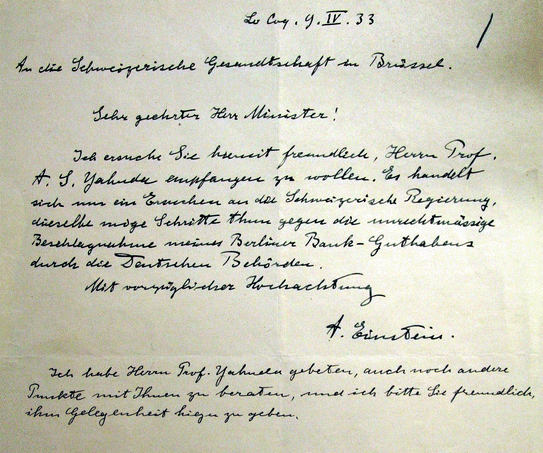 Le Coq. 9. IV. 33
An die Schweizerische Gesandtschaft in Brüssel.
Sehr geehrter Herr Minister!
Ich ersuche Sie hiemit freundlich, Herrn Prof.
A. S. Yahuda empfangen zu wollen. Es handelt
sich um ein Ersuchen an die Schweizerische Regierung,
dieselbe möge Schritte thun gegen die unrechtmässige
Beschlagnahme meines Berliner Bank-Guthabens
durch die Deutschen Behörden.
Mit vorzüglicher Hochachtung
A. Einstein.
Ich habe Herrn Prof. Yahuda gebeten, auch noch andere
Punkte mit Ihnen zu beraten, und ich bitte Sie freundlich,
ihm Gelegenheit hiezu zu geben.